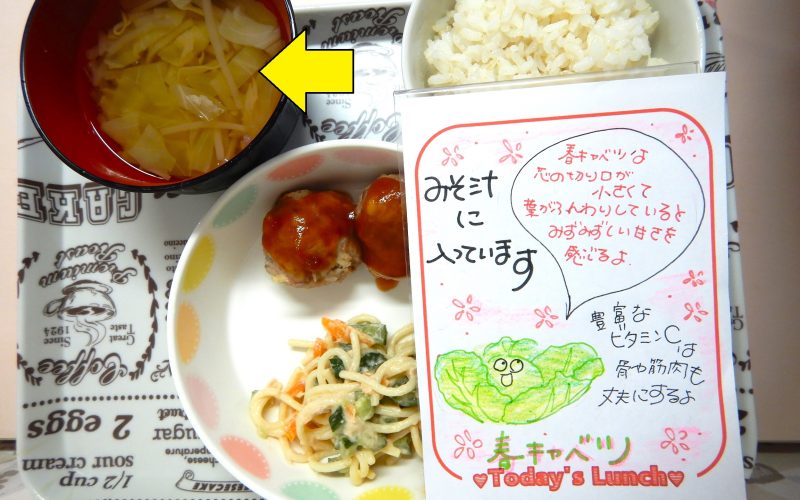 みそ汁
に
入っています
春キャベツは
芯の切り口が
小さくて
葉がふんわりしていると
みずみずしい甘さを
感じるよ
豊富な
ビタミンCは
骨や筋肉も
丈夫にするよ
春キャベツ
Today's Lunch
CAKE
Premium
Roast
Since
1924
Great
Taste
Coffee
2 eggs
sugar
sour cream
1/2 cup
CHEESECAKE
Premium
Roast
Since
Coffee